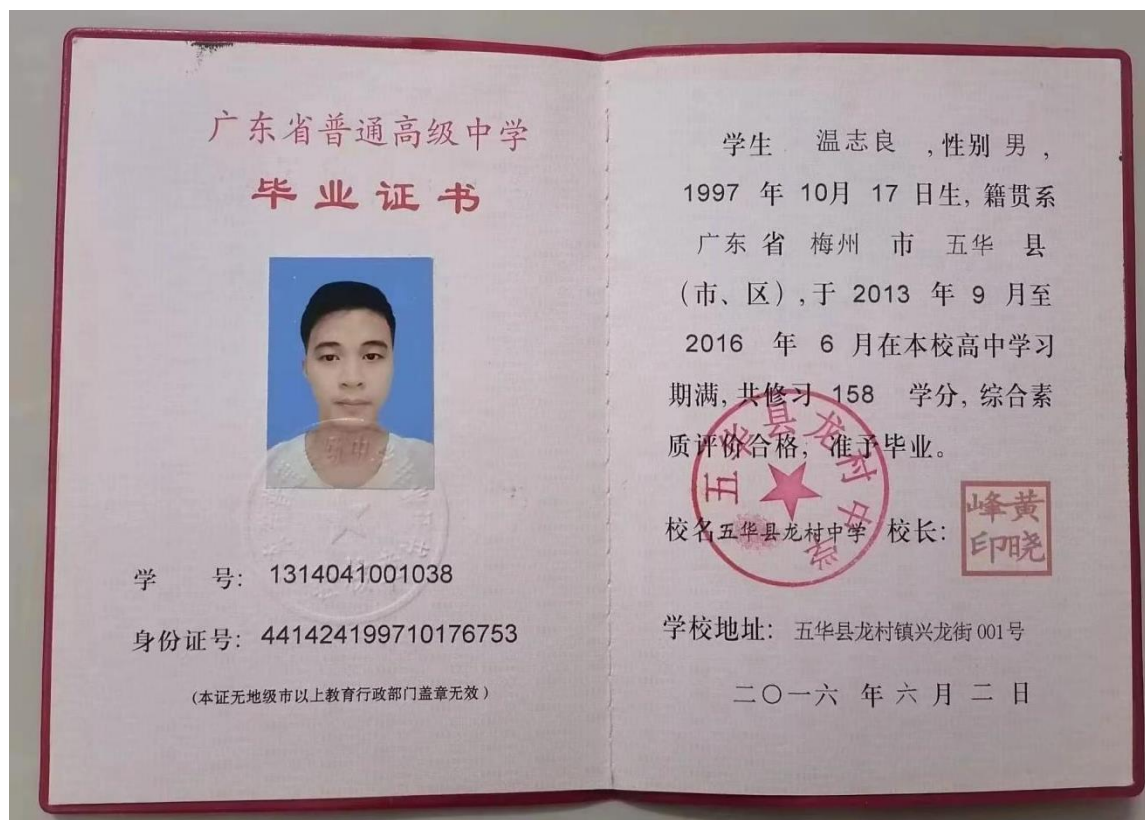 广东省普通高级中学
毕业证书
学 号: 1314041001038
身份证号: 441424199710176753
(本证无地级市以上教育行政部门盖章无效)
学生 温志良 ,性别 男 ,
1997 年 10月 17 日生, 籍贯系
广东 省 梅州 市 五华 县
(市、区) ,于 2013 年 9 月至
2016 年 6 月在本校高中学习
期满, 共修习 158 学分, 综合素
质评价合格, 准予毕业。
五华县龙村中学
校名五华县龙村中学 校长:
黄晓峰印
学校地址: 五华县龙村镇兴龙街 001号
二〇一六 年 六 月 二 日